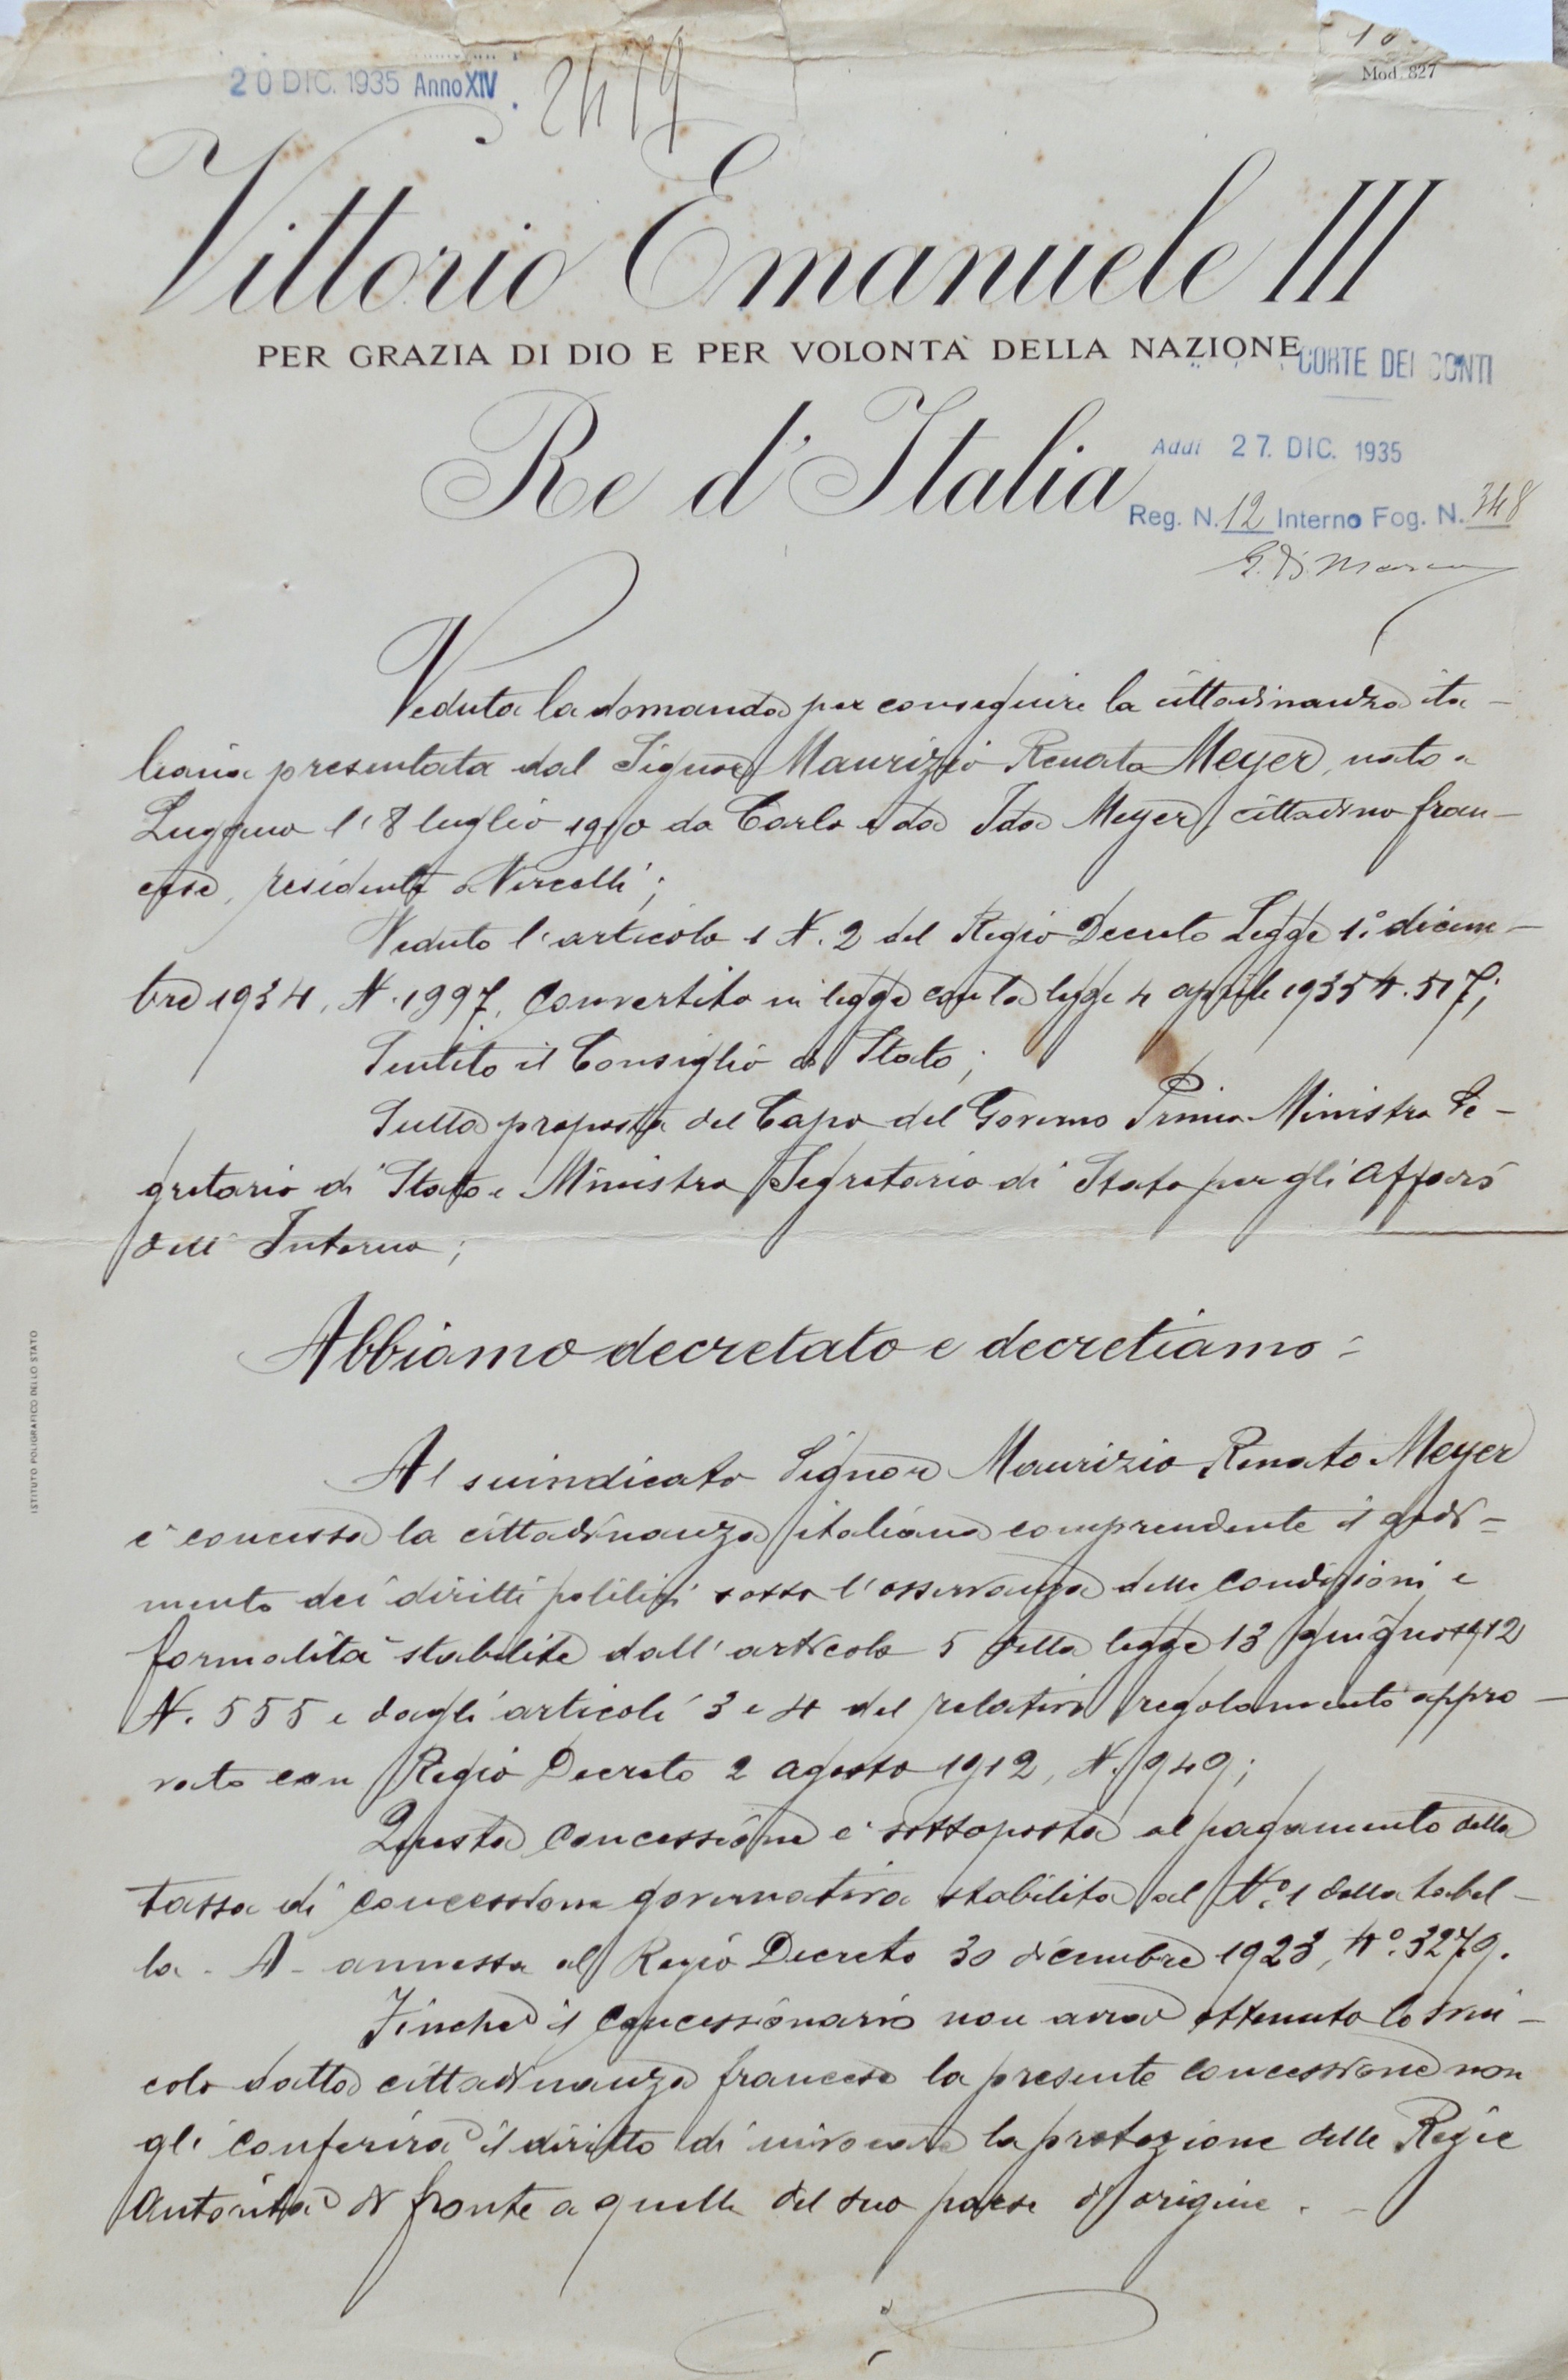 20 DIC. 1935 Anno XIV
Mod. 827
Vittorio Emanuele III
PER GRAZIA DI DIO E PER VOLONTÀ DELLA NAZIONE
CORTE DEI CONTI
Re d'Italia
Addì 27. DIC. 1935
Reg. N. 12 Interno Fog. N. 348
Veduta la domanda per conseguire la cittadinanza ita-
liana presentata dal Signor Maurizio Renato Meyer, nato a
l'8 luglio 1910 da Carlo e da Ida Meyer, cittadino fran-
cese, residente a Vercelli;
Veduto l'articolo 1 N. 2 del Regio Decreto Legge 1° dicem-
bre 1934, N. 1997, convertito in legge con la legge 4 aprile 1935 N. 517;
Sentito il Consiglio di Stato;
Sulla proposta del Capo del Governo Primo Ministro Se-
gretario di Stato e Ministro Segretario di Stato per gli Affari
dell'Interno;
Abbiamo decretato e decretiamo:
Al suindicato Signor Maurizio Renato Meyer
è concessa la cittadinanza italiana comprendente il godi=
mento dei diritti politici sotto l'osservanza delle condizioni e
formalità stabilite dall'articolo 5 della legge 13 giugno 1912
N. 555 e dagli articoli 3 e 4 del relativo regolamento appro-
vato con Regio Decreto 2 agosto 1912, N. 949;
Questa concessione è sottoposta al pagamento della
tassa di concessione governativa stabilita al N.° 1 della tabel-
la - A - annessa al Regio Decreto 30 dicembre 1923, N°. 3279.
Finchè il concessionario non avrà ottenuto lo svin-
colo dalla cittadinanza francese la presente concessione non
gli conferirà il diritto di invocare la protezione delle Regie
Autorità di fronte a quelle del suo paese di origine. -
ISTITUTO POLIGRAFICO DELLO STATO